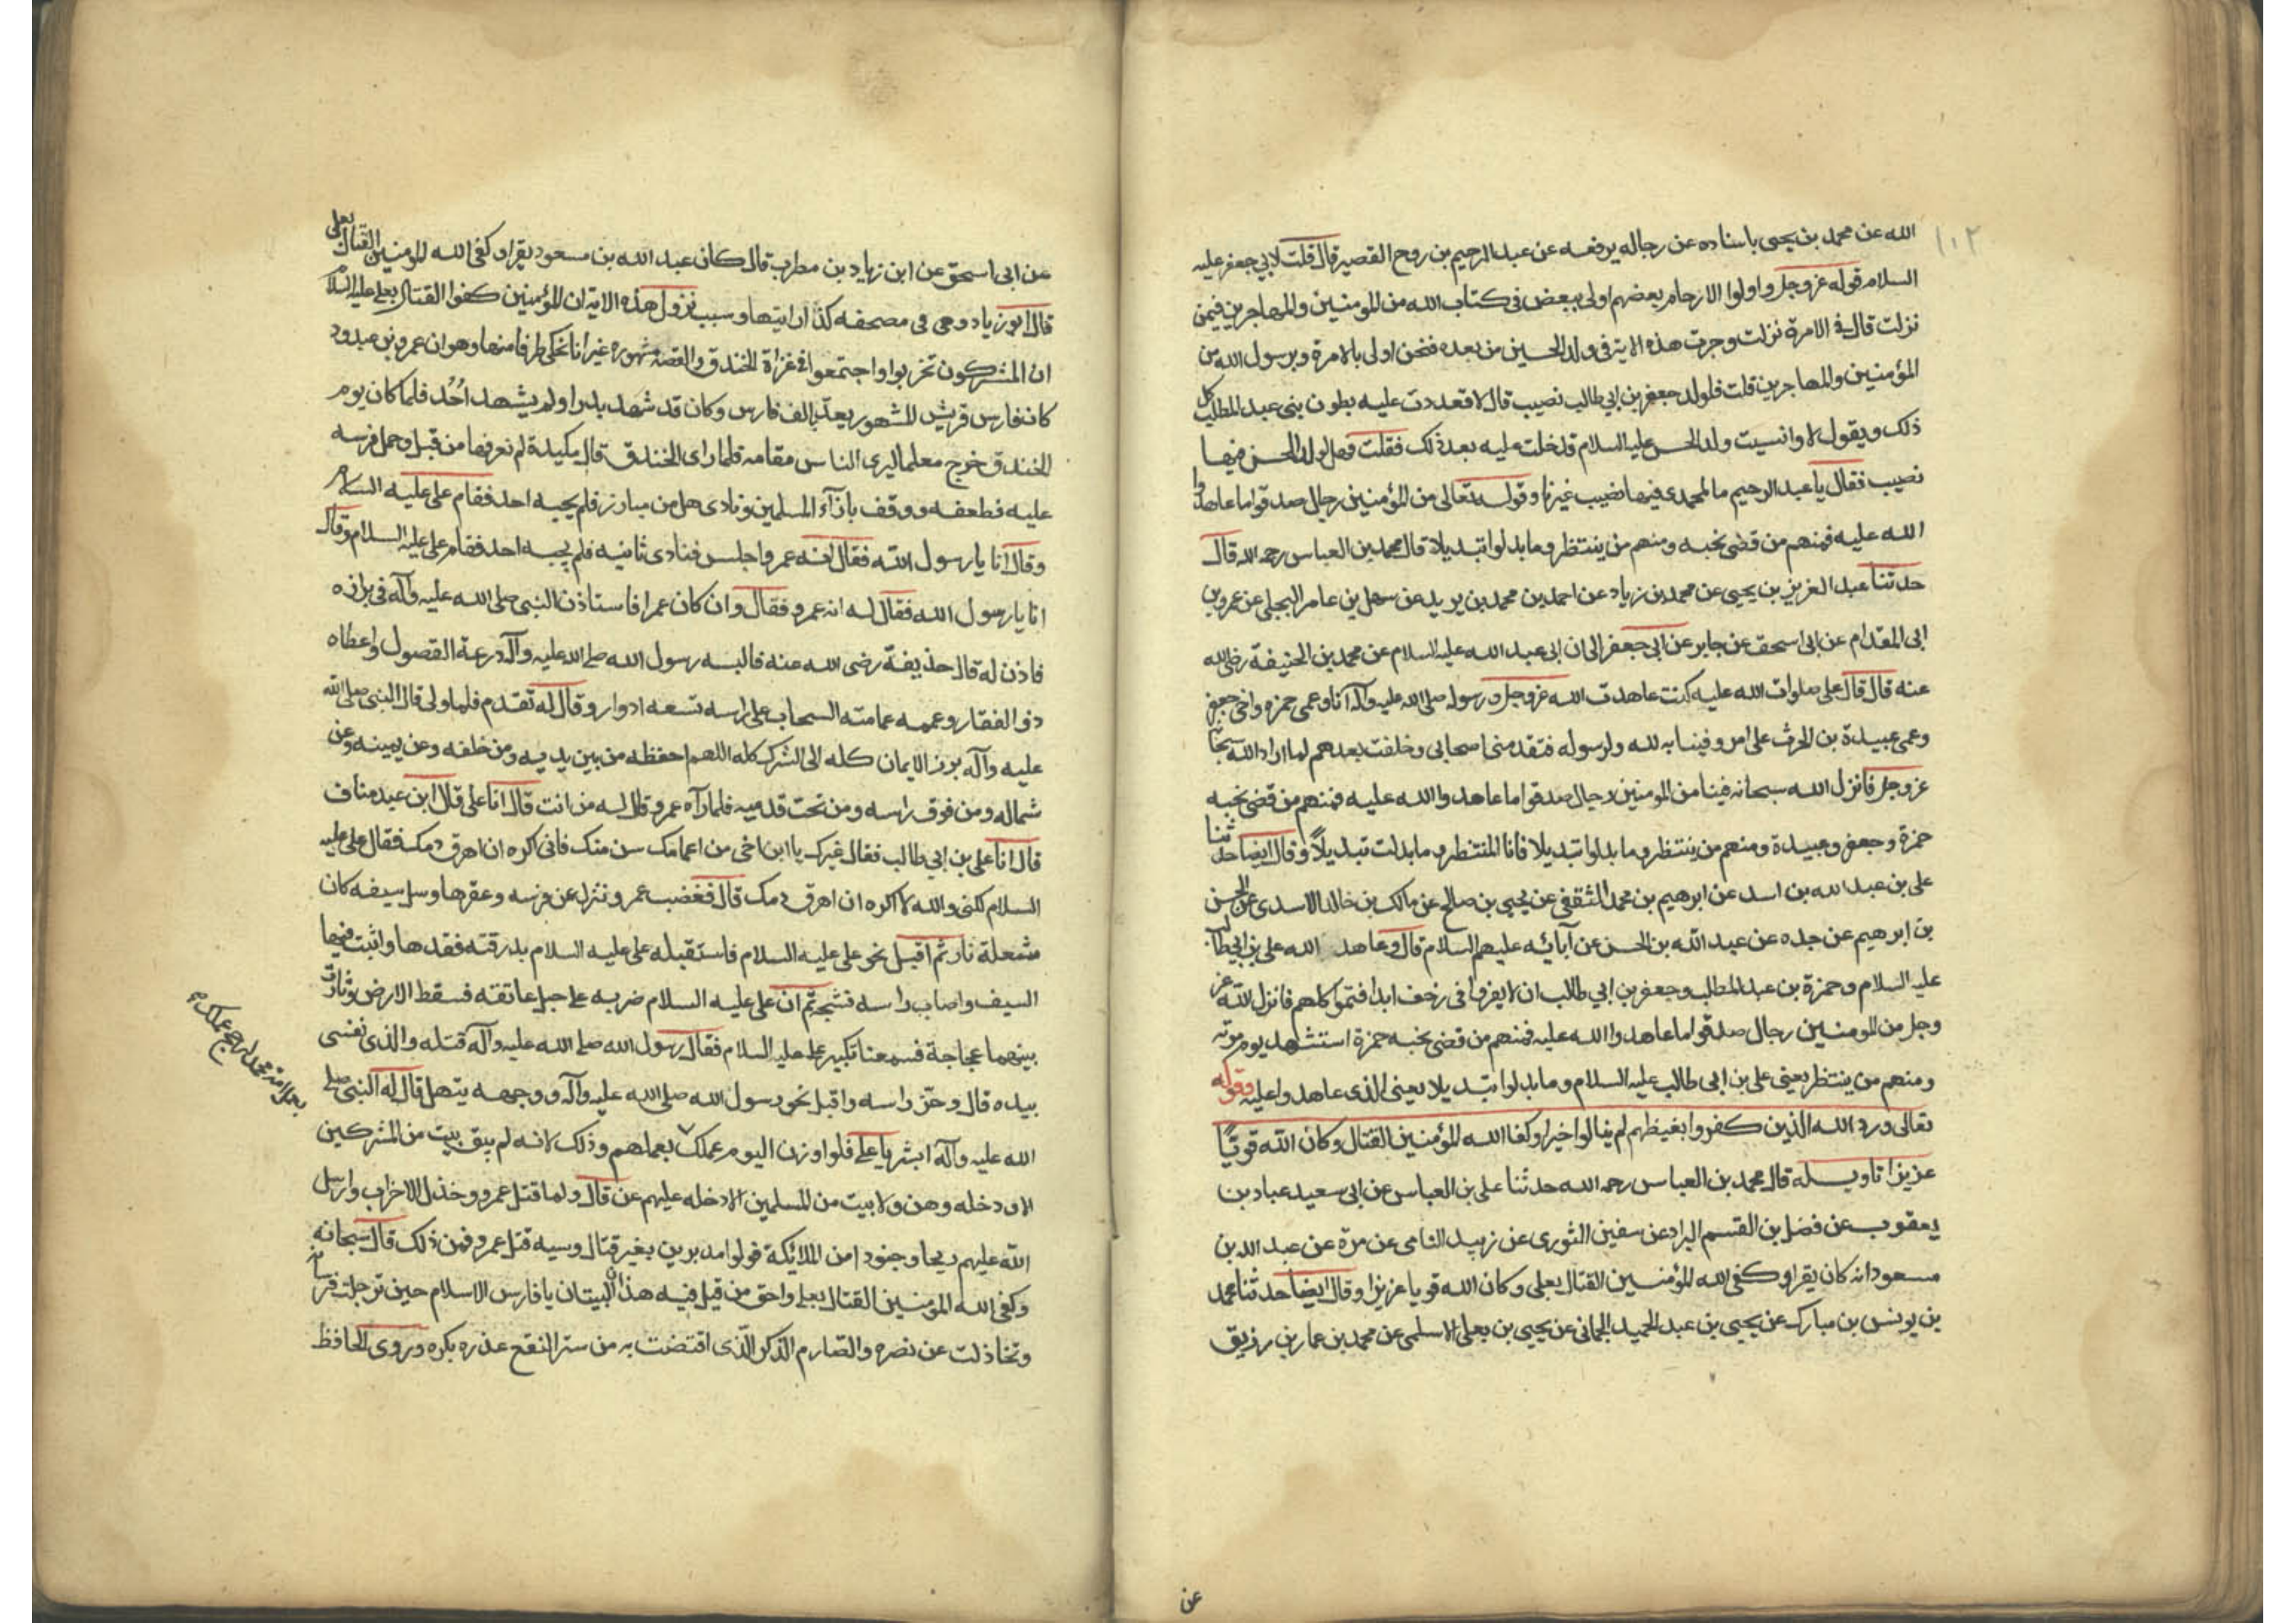 ١٠٢
الله عن محمد بن يحيى باسناده عن رجاله يرفعه عن عبد الرحيم بن روح القصير قال قلت لابي جعفر عليه
السلام قوله عز وجل واولوا الارحام بعضهم اولى ببعض في كتاب الله من المومنين والمهاجرين فيمن
نزلت قال في الامرة نزلت وجرت هذه الاية في ولد الحسين من بعده فنحن اولى بالامرة وبرسول الله من
المؤمنين والمهاجرين قلت فلولد جعفر بن ابي طالب نصيب قال لا فعددت عليه بطون بنى عبد المطلب كل
ذلك ويقول لا وانسيت ولد الحسن عليه السلام فدخلت عليه بعد ذلك فقلت فهل لولد الحسن فيها
نصيب فقال يا عبد الرحيم ما لمحمدى فيها نصيب غيرنا وقوله تعالى من المؤمنين رجال صدقوا ما عاهدوا
الله عليه فمنهم من قضى نحبه ومنهم من ينتظر وما بدلوا تبديلا قال محمد بن العباس رحمه الله قال
حدثنا عبد العزيز بن يحيى عن محمد بن زياد عن احمد بن محمد بن يزيد عن سهل بن عامر البجلى عن عمرو بن
ابى المقدام عن ابى اسحق عن جابر عن ابى جعفر الى ان ابى عبد الله عليه السلام عن محمد بن الحنيفة رضى الله
عنه قال قال على صلوات الله عليه كنت عاهدت الله عز وجل ورسوله صلى الله عليه وآله انا وعمى حمزه واخى جعفر
وعمى عبيدة بن الحرث على امر وفينا به لله ولرسوله فتقدمنى اصحابى وخلفت بعدهم لما اراد الله
عز وجل فانزل الله سبحانه فينا من المومنين رجال صدقوا ما عاهدوا الله عليه فمنهم من قضى نحبه
حمزة وجعفر وعبيدة ومنهم من ينتظر وما بدلوا تبديلا فانا المنتظر وما بدلت تبديلاً وقال ايضا حدثنا
على بن عبد الله بن اسد عن ابرهيم بن محمد الثقفى عن يحيى بن صالح عن مالك بن خالد الاسدى عن الحسن
بن ابرهيم عن جده عن عبد الله بن الحسن عن آبائه عليهم السلام قال وعاهد الله على بن ابى طالب
عليه السلام وحمزة بن عبد المطلب وجعفر بن ابي طالب ان لا يفروا فى زحف ابدا فتموا كلهم فانزل الله عز
وجل من المومنين رجال صدقوا ما عاهدوا الله عليه فمنهم من قضى نحبه حمزة استشهد يوم موته
ومنهم من ينتظر يعنى على بن ابى طالب عليه السلام وما بدلوا تبديلا يعنى الذى عاهدوا عليه وقوله
تعالى ورد الله الذين كفروا بغيظهم لم ينالوا خيرا وكفا الله المؤمنين القتال وكان الله قويًا
عزيزا تاويله قال محمد بن العباس رحمه الله حدثنا على بن العباس عن ابى سعيد عباد بن
يعقوب عن فضل بن القسم البراد عن سفين الثورى عن زبيد النامى عن مرة عن عبد الله بن
مسعود انه كان يقرا وكفى الله المؤمنين القتال بعلى وكان الله قويا عزيزا وقال ايضا حدثنا محمد
بن يونس بن مبارك عن يحيى بن عبد الحميد الحمانى عن يحيى بن يعلى الاسلمى عن محمد بن عمار بن رزيق
عن
عن ابى اسحق عن ابن زياد بن مطرب قال كان عبد الله بن مسعود يقرا وكفى الله المومنين القتال بعلى
قال ابو زياد وهى فى مصحفه كذا رايتها وسبب نزول هذه الاية ان المؤمنين كفوا القتال بعلى عليه السلام
ان المشركون تحزبوا واجتمعوا فى غزاة الخندق والقصة مشهورة غير انا نحكى طرفا منها وهو ان عمرو بن عبدود
كان فارس قريش المشهور يعد بالف فارس وكان قد شهد بدرا ولم يشهد اُحُد فلما كان يوم
الخندق خرج معلما ليرى الناس مقامه فلما راى الخندق قال مكيدة لم نعرفها من قبل وحمل فرسه
عليه فطعفه ووقف بازآء المسلمين ونادى هل من مبارز فلم يجبه احد فقام على عليه السلام
وقال انا يا رسول الله فقال انه عمرو اجلس فنادى ثانيه فلم يجبه احد فقام على عليه السلام وقال
انا يا رسول الله فقال له انه عمرو فقال وان كان عمرا فاستاذن النبى صلى الله عليه وآله فى برازه
فاذن له قال حذيفة رضى الله عنه فالبسه رسول الله صلى الله عليه وآله درعة الفصول واعطاه
ذو الفقار وعممه عمامته السحاب على راسه تسعه ادوار وقال له تقدم فلما ولى قال النبى صلى الله
عليه وآله برز الايمان كله الى الشرك كله اللهم احفظه من بين يديه ومن خلفه وعن يمينه وعن
شماله ومن فوق راسه ومن تحت قدميه فلما رآه عمرو قال له من انت قال انا على قال ابن عبد مناف
قال انا على بن ابي طالب فقال غيرك يا ابن اخى من اعمامك سن منك فانى اكره ان اهرق دمك فقال على عليه
السلام لكنى والله لا اكره ان اهرق دمك قال فغضب عمرو ونزل عن فرسه وعقرها وسل سيفه كان
مشعلة نار ثم اقبل نحو على عليه السلام فاستقبله على عليه السلام بدرقته فقدها واثبت فيها
السيف واصاب راسه فشجه ثم ان على عليه السلام ضربه على حبل عاتقه فسقط الارض وثارت
بينهما عجاجة فسمعنا تكبير على عليه السلام فقال رسول الله صلى الله عليه وآله قتله والذى نفسى
بيده قال وحز راسه واقبل نحو رسول الله صلى الله عليه وآله ووجهه يتهلل قال له النبى صلى
الله عليه وآله ابشر يا على فلو اوزن اليوم عملك بعملهم وذلك لانه لم يبق بيت من المشركين
الا ودخله وهن ولا بيت من المسلمين الا دخله عليهم عز قال ولما قتل عمرو وخذل الاحزاب وارسل
الله عليهم ريحا وجنودا من الملائكة فولوا مدبرين بغير قتال وسببه قتل عمرو فمن ذلك قال سبحانه
وكفى الله المؤمنين القتال بعلى واحق من قيل فيه هذان البيتان يا فارس الاسلام حين ترجلت فرسانه
وتخاذلت عن نصره والصارم الذكر الذى اقتضت به من ستر النقع عذره بكره وروى الحافظ
بعمل امة محمد لرجح عملك